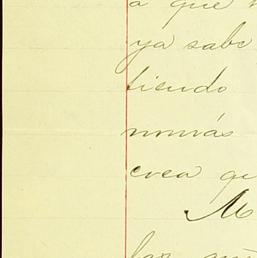 a que
ya sabe
tiendo
nomás
crea qu
M